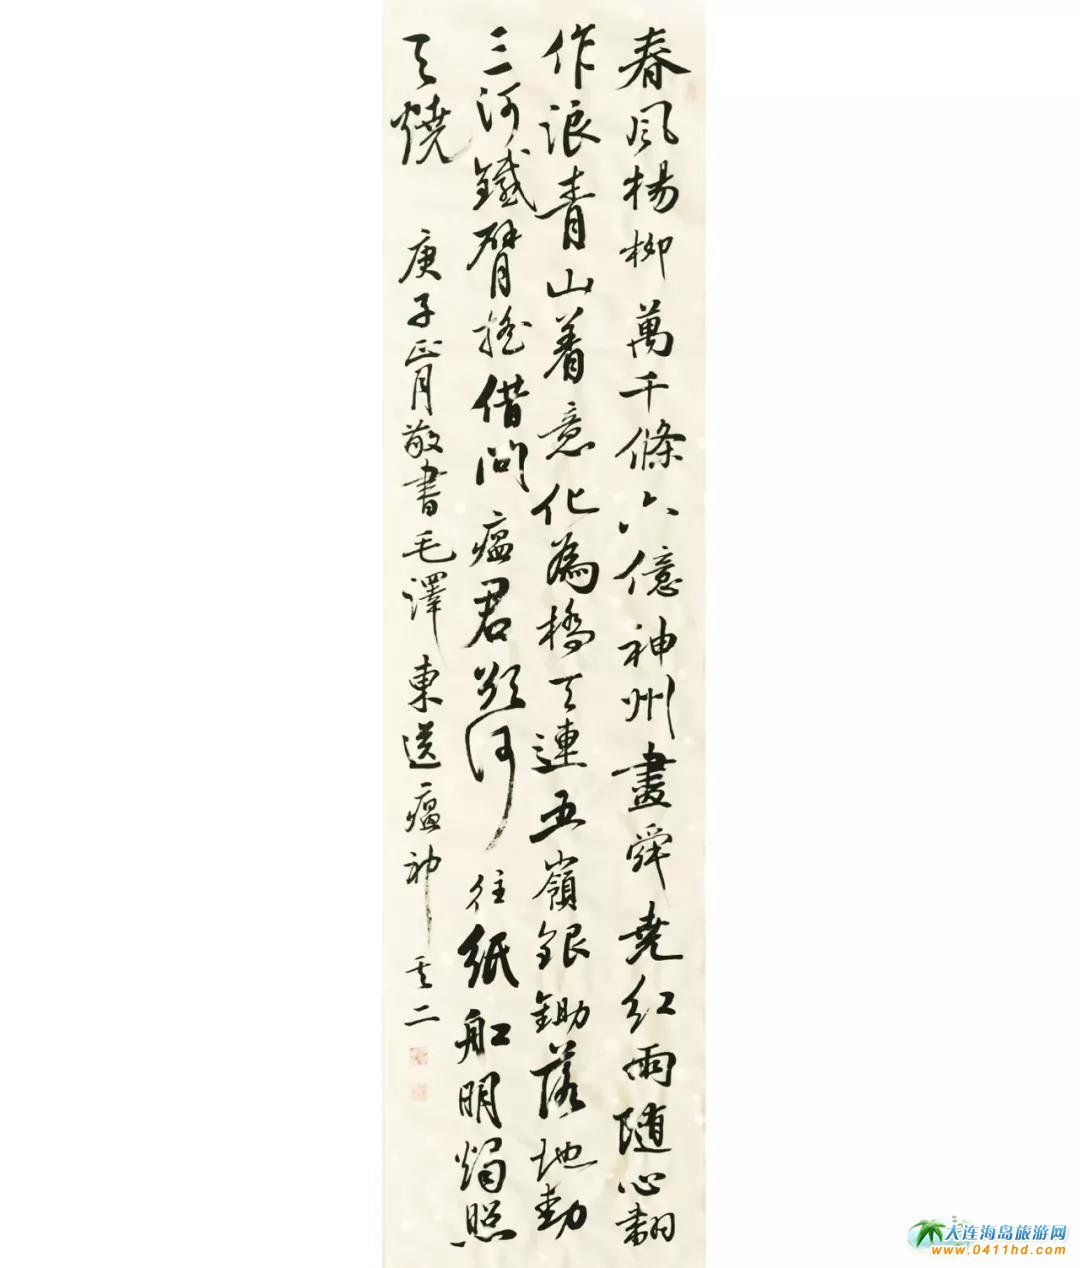 春風楊柳萬千條六億神州盡舜堯紅雨随心翻
作浪青山着意化為橋天連五嶺銀鋤落地動
三河鐵臂摇借問瘟君欲何往紙舡明燭照
天燒 庚子正月敬書毛澤東送瘟神 其二
大连海岛旅游网
www.0411hd.com